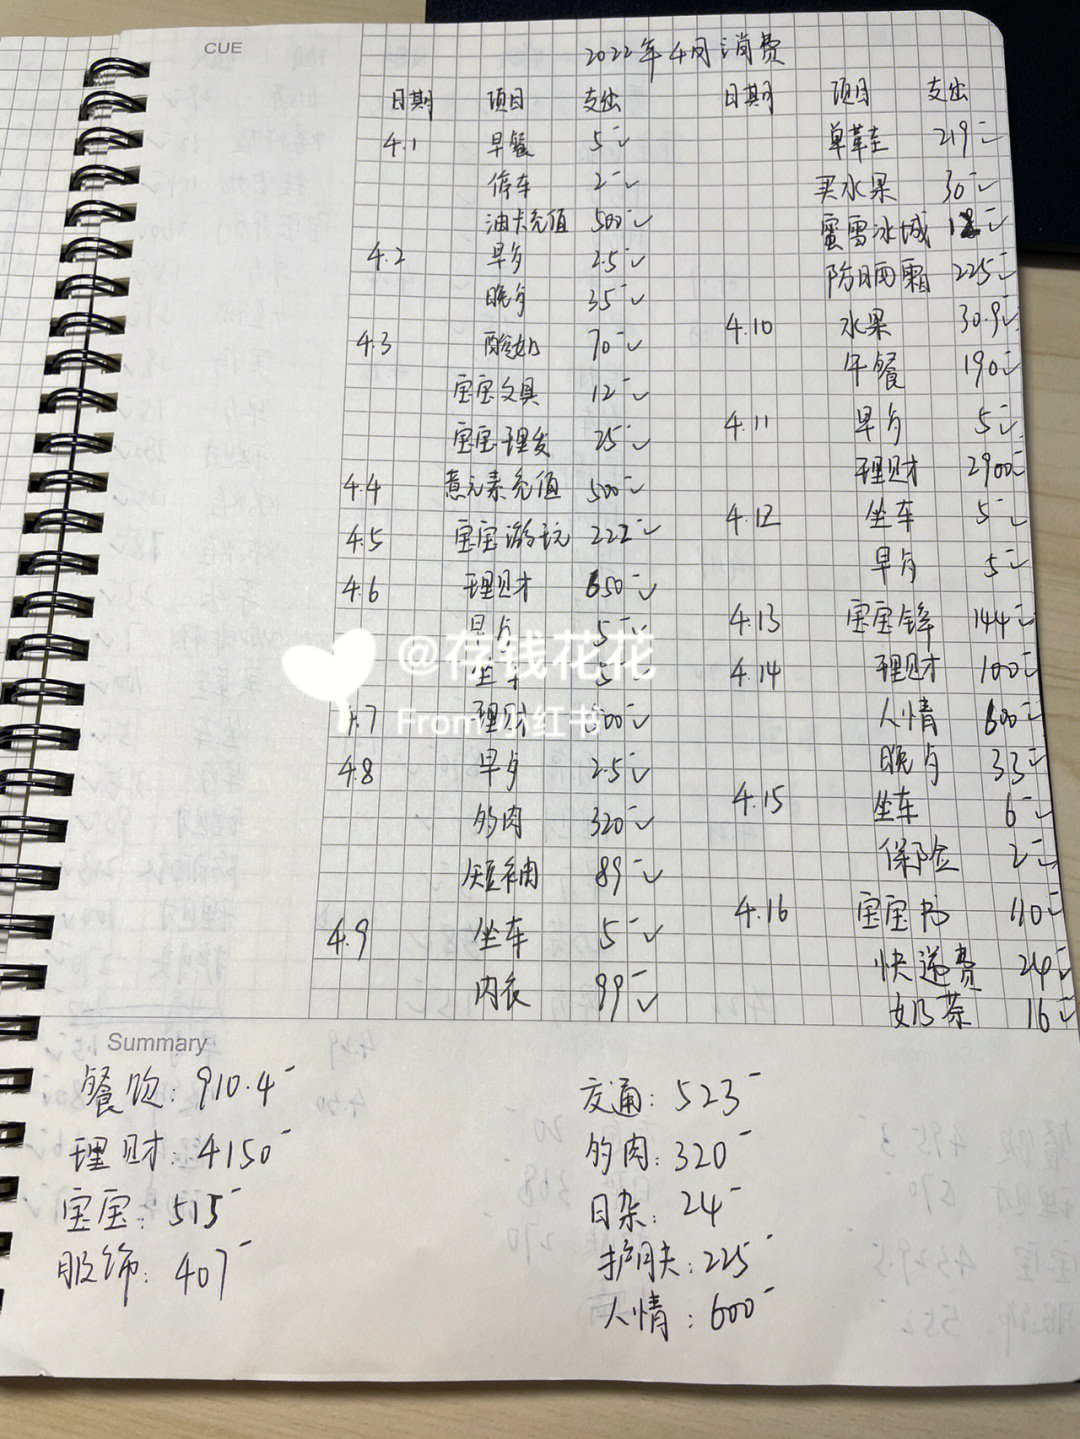 CUE
2022年4月消费
日期 项目 支出
4.1 早餐 5-
停车 2-
油卡充值 500-
4.2 早歺 2.5-
晚歺 35-
4.3 酸奶 70-
宝宝文具 12-
宝宝理发 25-
4.4 意元素充值 500-
4.5 宝宝游玩 222-
4.6 理财 650-
早歺 5-
坐车 5-
4.7 理财 500-
4.8 早歺 2.5-
多肉 320-
短袖 89-
4.9 坐车 5-
内衣 99-
日期 项目 支出
单鞋 219-
买水果 30-
蜜雪冰城
防日晒霜 225-
4.10 水果 30.9-
午餐 190-
4.11 早歺 5-
理财 2900-
4.12 坐车 5-
早歺 5-
4.13 宝宝 144-
4.14 理财 100-
人情 600-
晚歺 33-
4.15 坐车 6-
保险 2-
4.16 宝宝书 110-
快递费 24-
奶茶 16-
@存钱花花
From 小红书
Summary
餐饮: 910.4-
理财: 4150-
宝宝: 515-
服饰: 407-
交通: 523-
多肉: 320-
日杂: 24-
护肤: 225-
人情: 600-